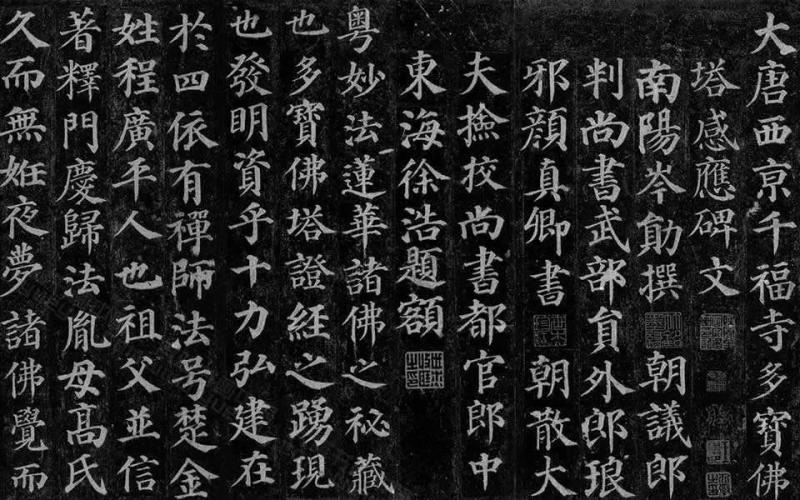 大唐西京千福寺多寶佛
塔感應碑文
南陽岑勛撰 朝議郎
判尚書武部員外郎琅
邪顏真卿書 朝散大
夫撿校尚書都官郎中
東海徐浩題額
粵妙法蓮華諸佛之祕藏
也多寶佛塔證經之踴現
也發明資乎十力弘建在
於四依有禪師法号楚金
姓程廣平人也祖父並信
著釋門慶歸法胤母高氏
久而無姙夜夢諸佛覺而